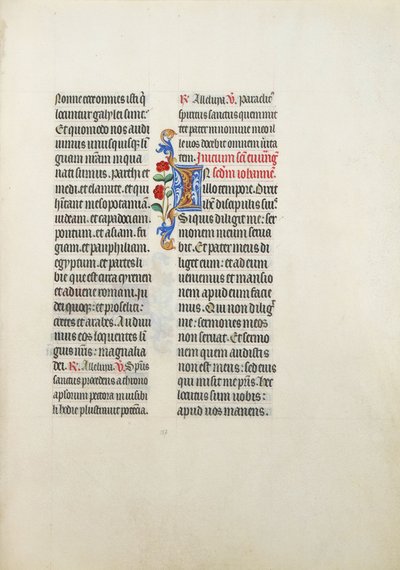 Nonne ecce omnes isti q̄
locuntur galylei sunt:
Et quomodo nos audi
uimus unusquisq; li
guam nr̄am in qua
nati sumus. parthi et
medi. et elamite. et qui
hītant mesopotamiā
iudeam. et capadociam.
pontum. et asiam. fri
giam. et pamphiliam.
egyptum. et partes li
bie que est circa cyrenen
et aduene romani. Iu
dei quoq; et proseliti:
cretes et arabes. Audiui
mus eos loquentes li
guis nr̄is: magnalia
dei. R̷. Alleluya. V̷. Sp̄us
sanctus procedens a throno
ap̄lorum pectora inuisibi
li hodie plustrauit potētia.
R̷. Alleluya. V̷. Paraclit᷒
spiritus sanctus quem mit
tet pater in nomine meo il
le uos docebit omnem uerita
tem. Inicium sc̄i euuāg̅
sc̄dm iohannē.
IN
illo tempore. Dixit
ih̄s discipulis suis.
Siquis diligit me: ser
monem meum serua
bit. Et pater meus di
liget eum: et ad eum
ueniemus et mansio
nem apud eum facie
mus. Qui non diligit
me: sermones meos
non seruat. Et sermo
nem quem audistis
non est meus: sed eius
qui misit me pr̄is. Hec
locutus sum uobis:
apud uos manens.